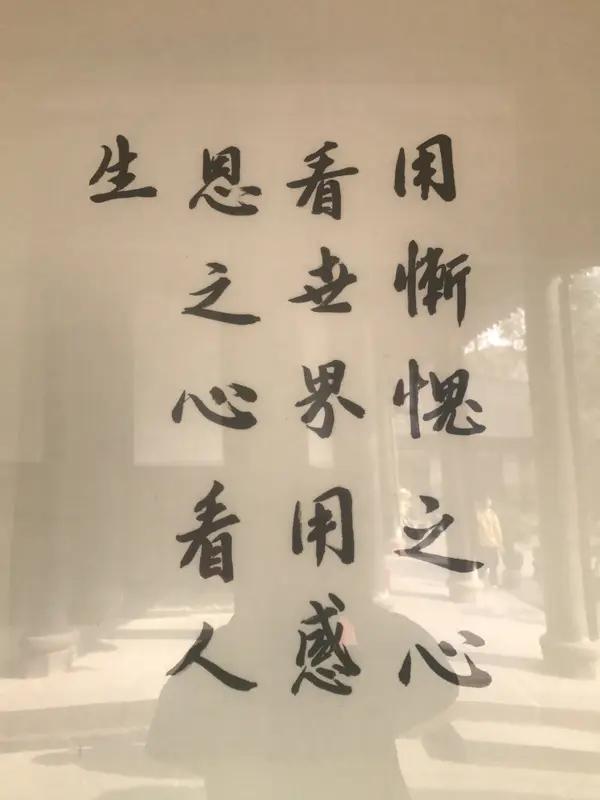 用惭愧之心
看世界用感
恩之心看人
生